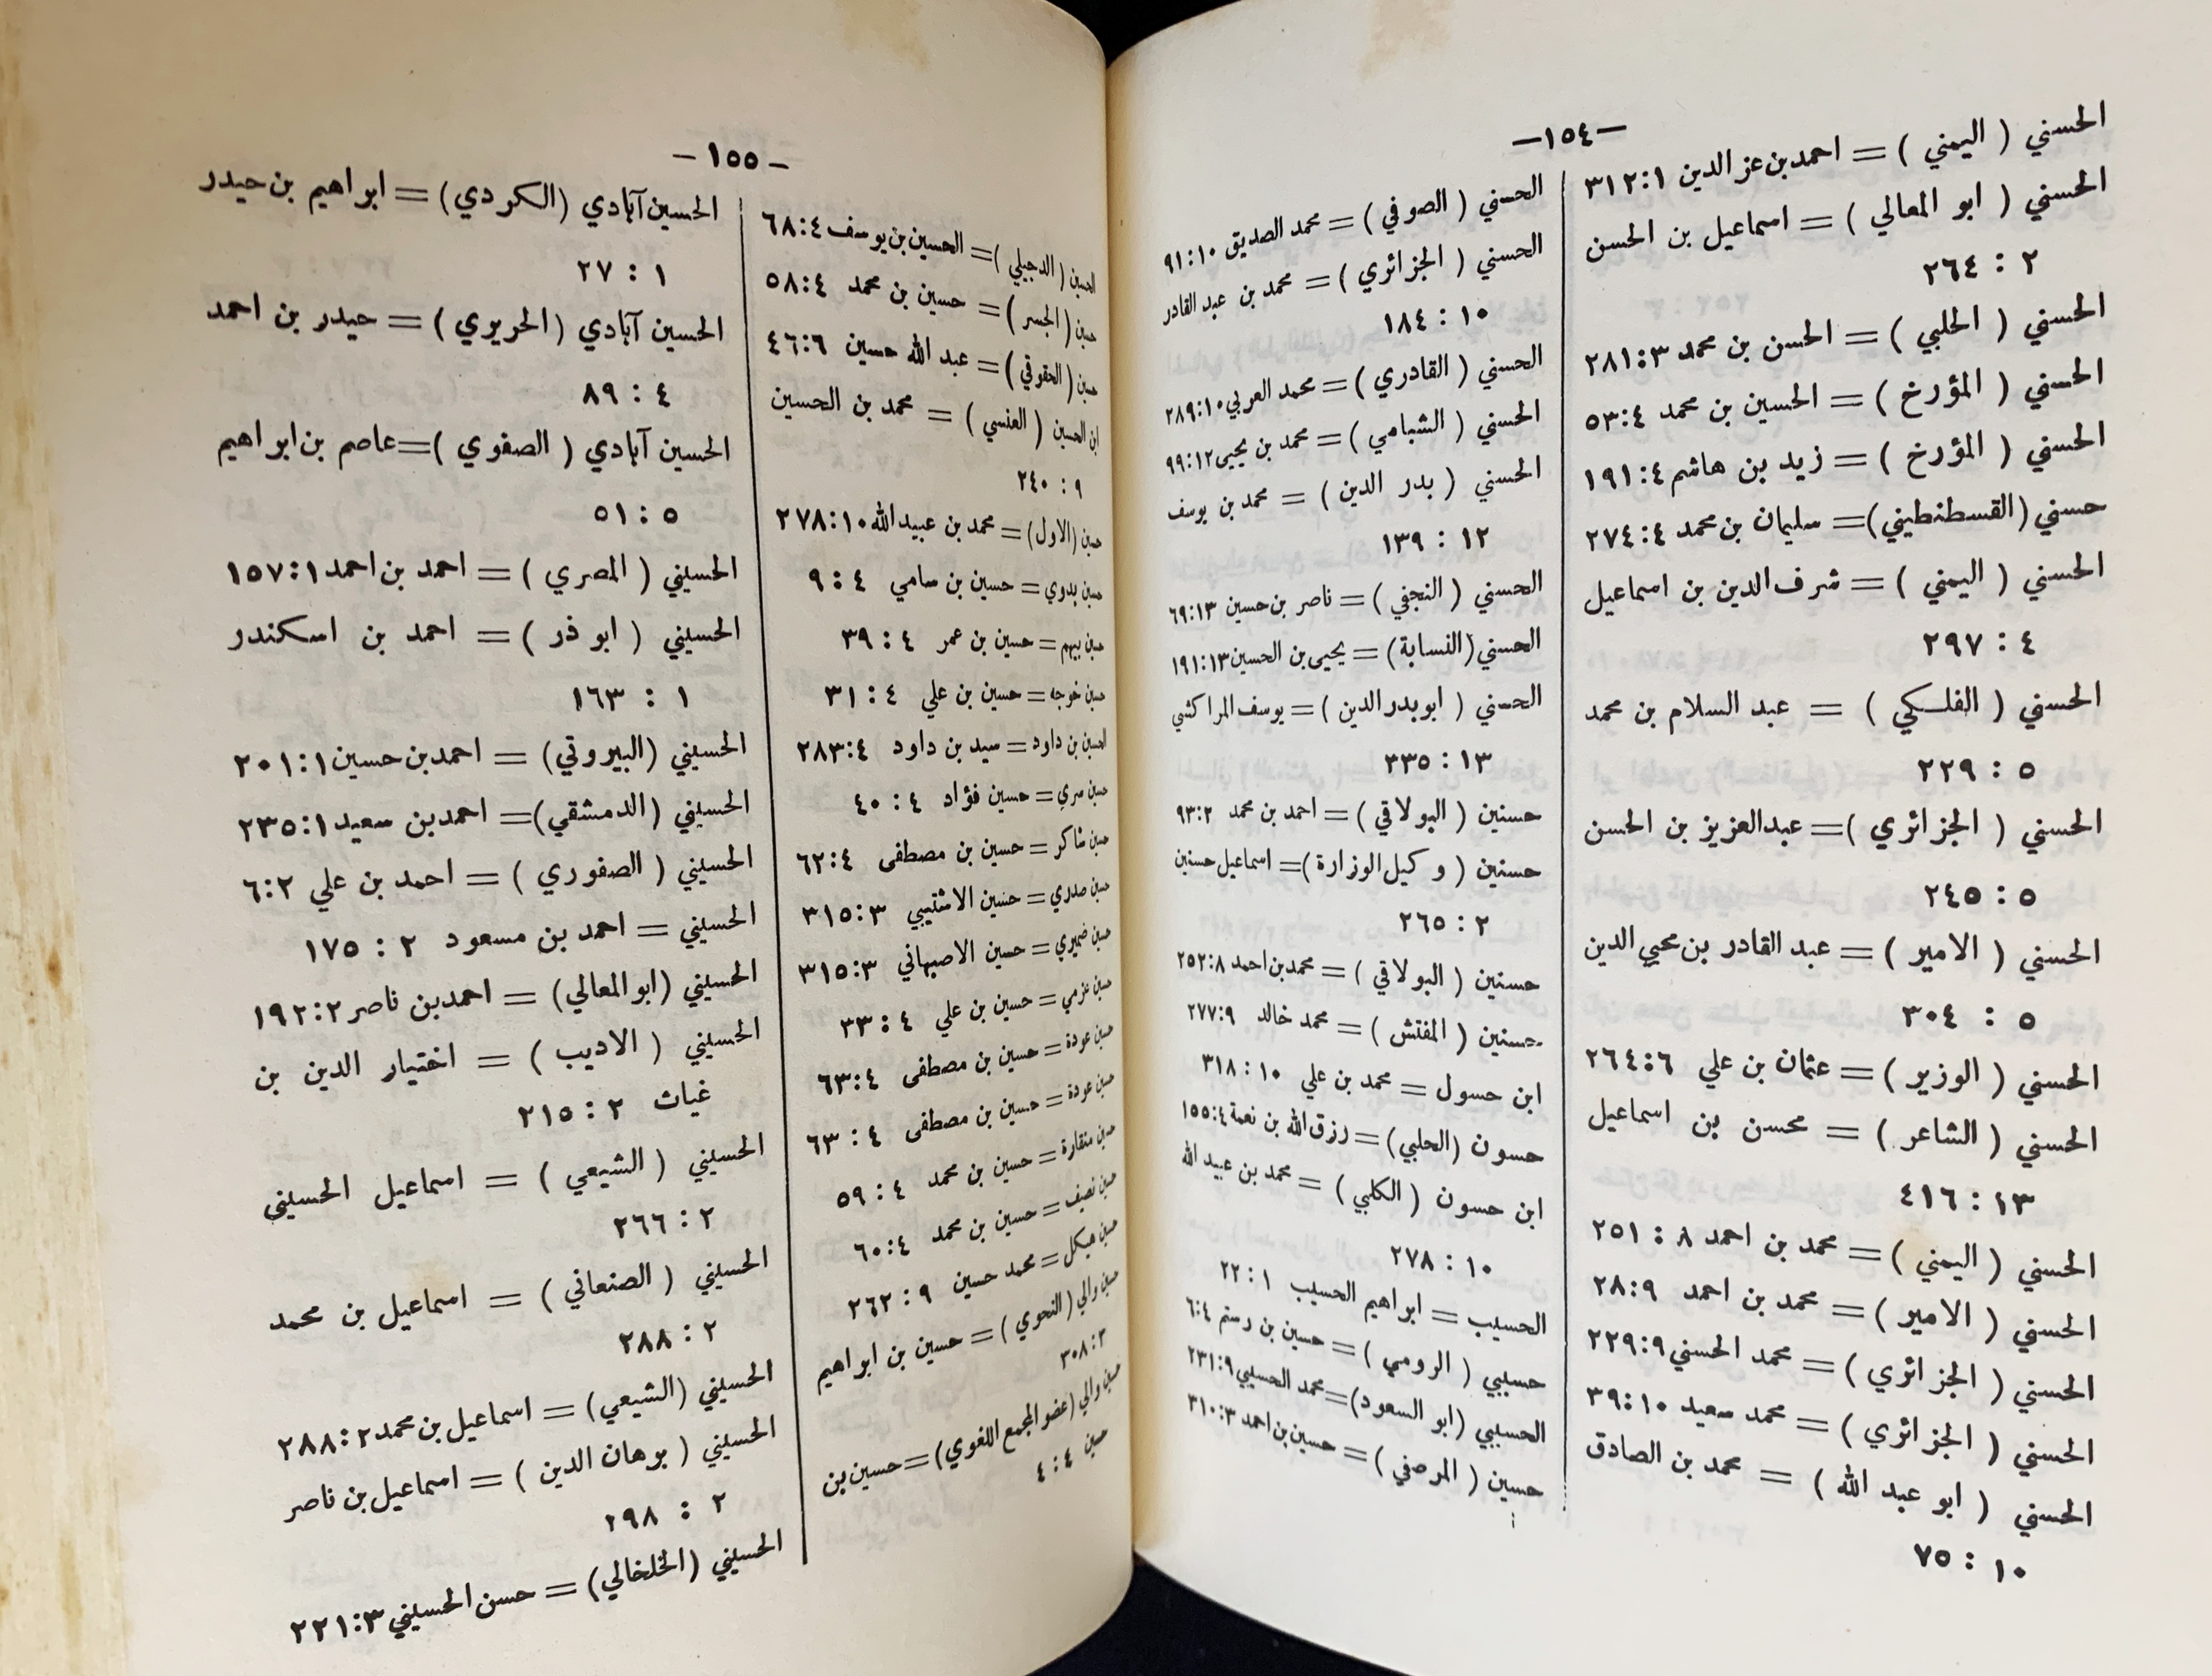 —١٥٤—
الحسني ( اليمني ) = احمد بن عز الدين ٣١٢:١
الحسني ( ابو المعالي ) = اسماعيل بن الحسن
٢ : ٢٦٤
الحسني ( الحلبي ) = الحسن بن محمد ٢٨١:٣
الحسني ( المؤرخ ) = الحسين بن محمد ٥٣:٤
الحسني ( المؤرخ ) = زيد بن هاشم ١٩١:٤
حسني (القسطنطيني) = سليمان بن محمد ٢٧٤:٤
الحسني ( اليمني ) = شرف الدين بن اسماعيل
٤ : ٢٩٧
الحسني ( الفلكي ) = عبد السلام بن محمد
٥ : ٢٢٩
الحسني ( الجزائري ) = عبدالعزيز بن الحسن
٥ : ٢٤٥
الحسني ( الامير ) = عبد القادر بن محيي الدين
٥ : ٣٠٤
الحسني ( الوزير ) = عثمان بن علي ٢٦٤:٦
الحسني ( الشاعر ) = محسن بن اسماعيل
١٣ : ٤١٦
الحسني ( اليمني ) = محمد بن احمد ٨ : ٢٥١
الحسني ( الامير ) = محمد بن احمد ٢٨:٩
الحسني ( الجزائري ) = محمد الحسني ٢٢٩:٩
الحسني ( الجزائري ) = محمد سعيد ٣٩:١٠
الحسني ( ابو عبد الله ) = محمد بن الصادق
١٠ : ٧٥
الحسني ( الصوفي ) = محمد الصديق ٩١:١٠
الحسني ( الجزائري ) = محمد بن عبد القادر
١٠ : ١٨٤
الحسني ( القادري ) = محمد العربي ٢٨٩:١٠
الحسني ( الشبامي ) = محمد بن يحيى ٩٩:١٢
الحسني ( بدر الدين ) = محمد بن يوسف
١٢ : ١٣٩
الحسني ( النجفي ) = ناصر بن حسين ٦٩:١٣
الحسني (النسابة) = يحيى بن الحسين ١٩١:١٣
الحسني ( ابو بدر الدين ) = يوسف المراكشي
١٣ : ٣٣٥
حسنين ( البولاقي ) = احمد بن محمد ٩٣:٢
حسنين ( وكيل الوزارة ) = اسماعيل حسنين
٢ : ٢٦٥
حسنين ( البولاقي ) = محمد بن احمد ٢٥٢:٨
حسنين ( المفتش ) = محمد خالد ٢٧٧:٩
ابن حسول = محمد بن علي ١٠ : ٣١٨
حسون (الحلبي) = رزق الله بن نعمة ١٥٥:٤
ابن حسون ( الكلبي ) = محمد بن عبيد الله
١٠ : ٢٧٨
الحسيب = ابراهيم الحسيب ١ : ٢٢
حسيبي ( الرومي ) = حسين بن رستم ٦:٤
الحسيبي (ابو السعود) = محمد الحسيبي ٢٣١:٩
حسين ( المرصفي ) = حسين بن احمد ٣١٠:٣
—١٥٥—
الحسين ( الدجيلي ) = الحسين بن يوسف ٦٨:٤
حسين ( الجسر ) = حسين بن محمد ٥٨:٤
حسين ( الحقوقي ) = عبد الله حسين ٤٦:٦
ابن الحسين ( العنسي ) = محمد بن الحسين
٩ : ٢٤٠
حسين (الاول) = محمد بن عبيدالله ٢٧٨:١٠
حسين بدوي = حسين بن سامي ٤ : ٩
حسين بيهم = حسين بن عمر ٤ : ٣٩
حسين خوجه = حسين بن علي ٤ : ٣١
الحسين بن داود = سيد بن داود ٢٨٣:٤
حسين سري = حسين فؤاد ٤ : ٤٠
حسين شاكر = حسين بن مصطفى ٦٢:٤
حسين صدري = حسين الاشتيبي ٣١٥:٣
حسين ضميري = حسين الاصبهاني ٣١٥:٣
حسين عزمي = حسين بن علي ٤ : ٣٣
حسين عودة = حسين بن مصطفى ٦٣:٤
حسين عودة = حسين بن مصطفى ٤ : ٦٣
حسين منقارة = حسين بن محمد ٤ : ٥٩
حسين نصيف = حسين بن محمد ٦٠:٤
حسين هيكل = محمد حسين ٩ : ٢٦٢
حسين والي ( النحوي ) = حسين بن ابراهيم
٣٠٨:٣
حسين والي (عضو المجمع اللغوي) = حسين بن
حسين ٤ : ٤
الحسين آبادي (الكردي) = ابراهيم بن حيدر
١ : ٢٧
الحسين آبادي (الحريري ) = حيدر بن احمد
٤ : ٨٩
الحسين آبادي ( الصفوي ) = عاصم بن ابراهيم
٥ : ٥١
الحسيني ( المصري ) = احمد بن احمد ١٥٧:١
الحسيني ( ابو ذر ) = احمد بن اسكندر
١ : ١٦٣
الحسيني (البيروتي) = احمد بن حسين ٢٠١:١
الحسيني (الدمشقي) = احمد بن سعيد ٢٣٥:١
الحسيني ( الصفوري ) = احمد بن علي ٦:٢
الحسيني = احمد بن مسعود ٢ : ١٧٥
الحسيني (ابو المعالي) = احمد بن ناصر ١٩٢:٢
الحسيني ( الاديب ) = اختيار الدين بن
غياث ٢ : ٢١٥
الحسيني ( الشيعي ) = اسماعيل الحسيني
٢ : ٢٦٦
الحسيني ( الصنعاني ) = اسماعيل بن محمد
٢ : ٢٨٨
الحسيني (الشيعي) = اسماعيل بن محمد ٢٨٨:٢
الحسيني ( برهان الدين ) = اسماعيل بن ناصر
٢ : ٢٩٨
الحسيني (الخلخالي) = حسن الحسيني ٢٢١:٣